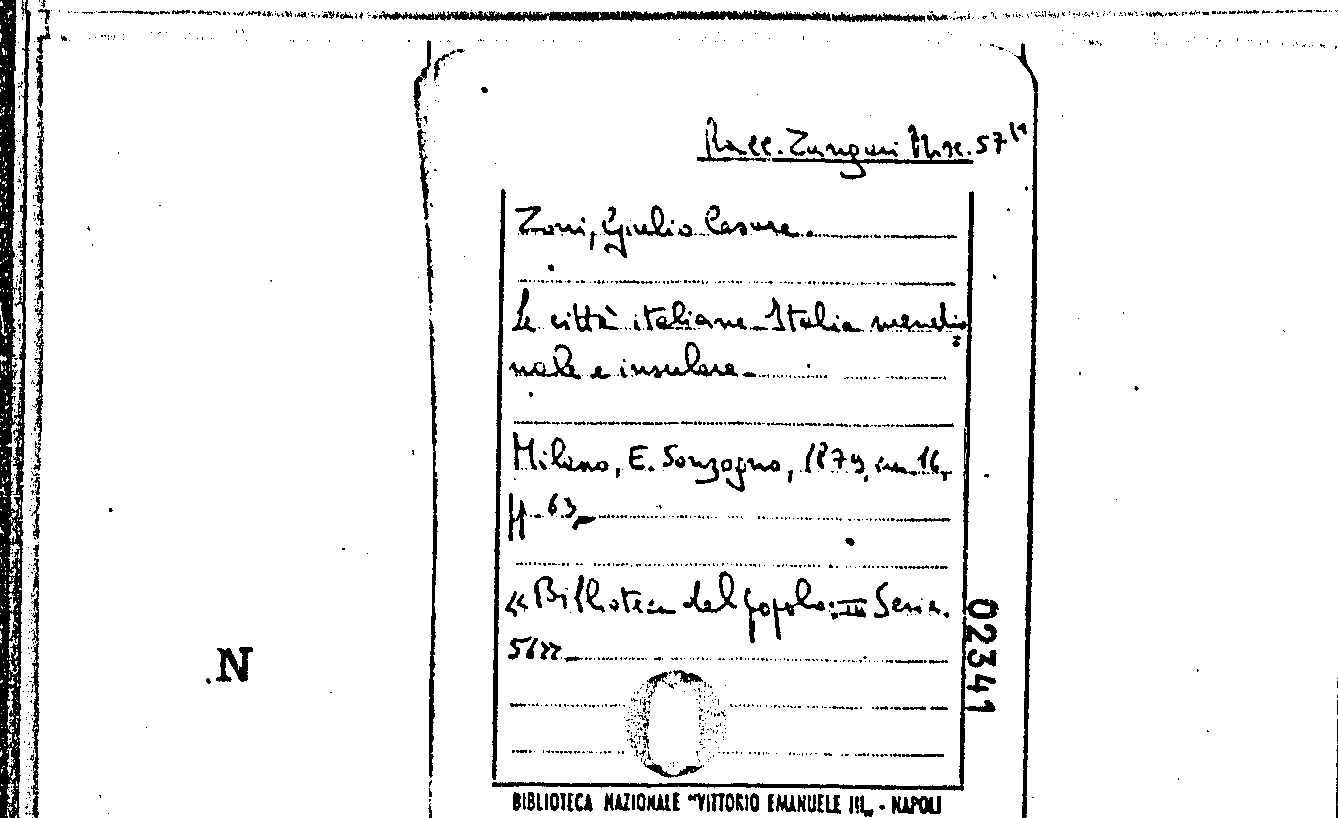 Racc. Zangari Misc. 57
Zoni, Giulio Cesare.
Le città italiane. Italia meridio
nale e insulare.
Milano, E. Sonzogno, 1879, in 16,
pp. 63,
«Biblioteca del popolo: III Serie.
56»
02341
N
BIBLIOTECA NAZIONALE "VITTORIO EMANUELE III„ - NAPOLI